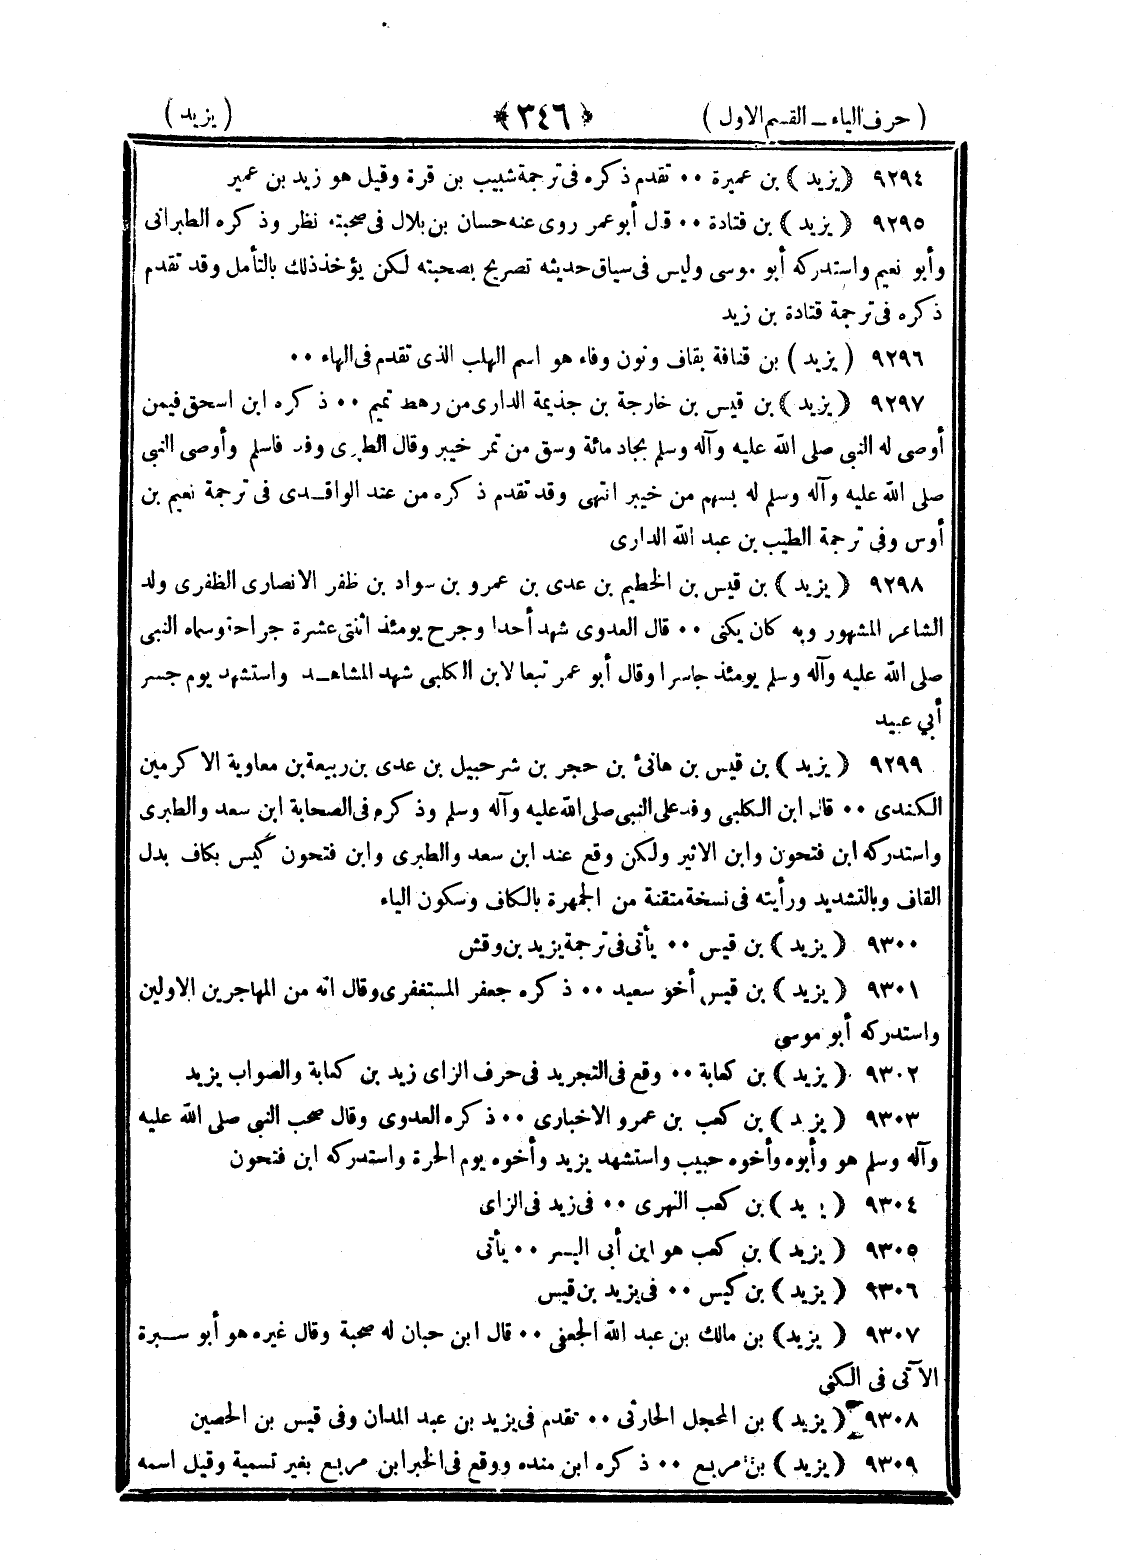 ( حرف الياء ــ القسم الاول ) ﴿ ٣٤٦ ﴾ ( يزيد )
٩٢٩٤ ( يزيد ) بن عميرة ٠٠ تقدم ذكره فى ترجمة شبيب بن قرة وقيل هو زيد بن عمير
٩٢٩٥ ( يزيد ) بن قتادة ٠٠ قال أبو عمر روى عنه حسان بن بلال فى صحبته نظر وذكره الطبرانى
وأبو نعيم واستدركه أبو موسى وليس فى سياق حديثه تصريح بصحبته لكن يؤخذ ذلك بالتأمل وقد تقدم
ذكره فى ترجمة قتادة بن زيد
٩٢٩٦ ( يزيد ) بن قنافة بقاف ونون وفاء هو اسم الهلب الذى تقدم فى الهاء ٠٠
٩٢٩٧ ( يزيد ) بن قيس بن خارجة بن جذيمة الدارى من رهط تميم ٠٠ ذكره ابن اسحق فيمن
أوصى له النبى صلى الله عليه وآله وسلم بجاد مائة وسق من تمر خيبر وقال الطبرى وفد فاسلم وأوصى النبى
صلى الله عليه وآله وسلم له بسهم من خيبر انتهى وقد تقدم ذكره من عند الواقــدى فى ترجمة نعيم بن
أوس وفى ترجمة الطيب بن عبد الله الدارى
٩٢٩٨ ( يزيد ) بن قيس بن الخطيم بن عدى بن عمرو بن سواد بن ظفر الانصارى الظفرى ولد
الشاعر المشهور وبه كان يكنى ٠٠ قال العدوى شهد أحدا وجرح يومئذ اثنتى عشرة جراحة وسماه النبى
صلى الله عليه وآله وسلم يومئذ جاسرا وقال أبو عمر تبعا لابن الكلبى شهد المشاهــد واستشهد يوم جسر
أبي عبيد
٩٢٩٩ ( يزيد ) بن قيس بن هانئ بن حجر بن شرحبيل بن عدى بن ربيعة بن معاوية الاكرمين
الكندى ٠٠ قال ابن الكلبى وفد على النبى صلى الله عليه وآله وسلم وذكره فى الصحابة ابن سعد والطبرى
واستدركه ابن فتحون وابن الاثير ولكن وقع عند ابن سعد والطبرى وابن فتحون كيس بكاف بدل
القاف وبالتشديد ورأيته فى نسخة متقنة من الجمهرة بالكاف وسكون الياء
٩٣٠٠ ( يزيد ) بن قيس ٠٠ يأتى فى ترجمة يزيد بن وقش
٩٣٠١ ( يزيد ) بن قيس أخو سعيد ٠٠ ذكره جعفر المستغفرى وقال انه من المهاجرين الاولين
واستدركه أبو موسى
٩٣٠٢ ( يزيد ) بن كعابة ٠٠ وقع فى التجريد فى حرف الزاى زيد بن كعابة والصواب يزيد
٩٣٠٣ ( يزيد ) بن كعب بن عمرو الاخبارى ٠٠ ذكره العدوى وقال صحب النبى صلى الله عليه
وآله وسلم هو وأبوه وأخوه حبيب واستشهد يزيد وأخوه يوم الحرة واستدركه ابن فتحون
٩٣٠٤ ( يزيد ) بن كعب النهرى ٠٠ فى زيد فى الزاى
٩٣٠٥ ( يزيد ) بن كعب هو ابن أبى اليسر ٠٠ يأتى
٩٣٠٦ ( يزيد ) بن كيس ٠٠ فى يزيد بن قيس
٩٣٠٧ ( يزيد ) بن مالك بن عبد الله الجعفى ٠٠ قال ابن حبان له صحبة وقال غيره هو أبو ســبرة
الآتى فى الكنى
٩٣٠٨ ( يزيد ) بن المحجل الحارثى ٠٠ تقدم فى يزيد بن عبد المدان وفى قيس بن الحصين
٩٣٠٩ ( يزيد ) بن مربع ٠٠ ذكره ابن منده ووقع فى الخبر ابن مربع بغير تسمية وقيل اسمه